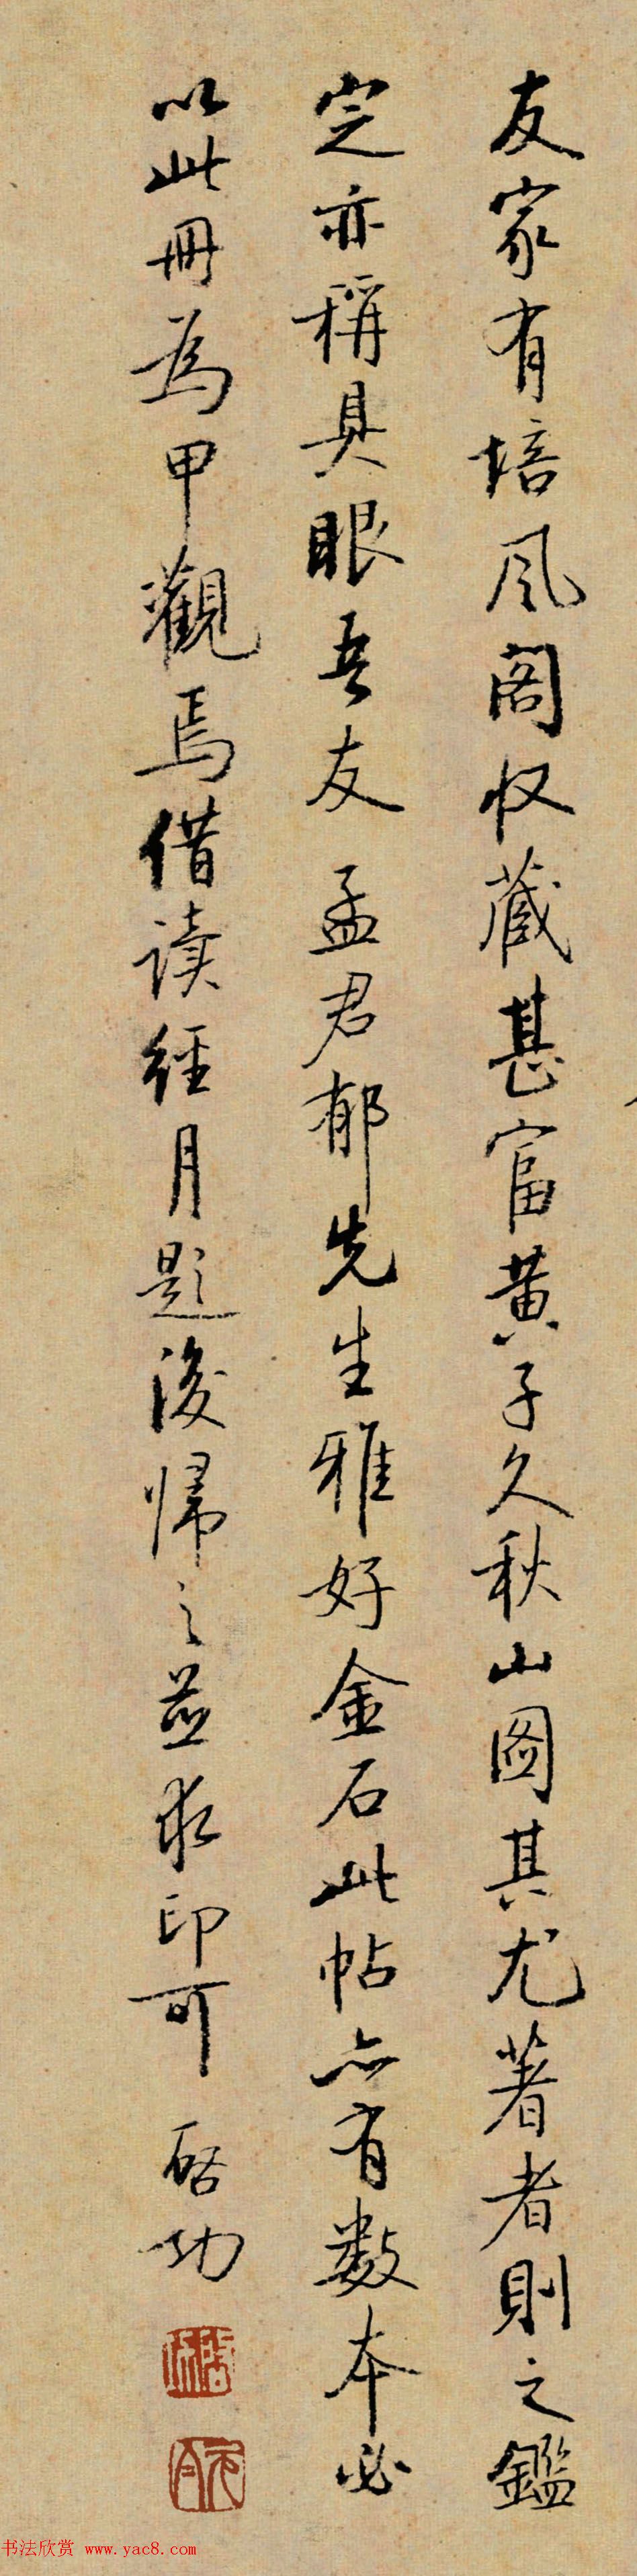 友家有培风阁收藏甚富黄子久秋山图其尤著者则之鑑
定亦稱具眼吾友孟君郁先生雅好金石此帖亦有数本必
以此冊為甲觀焉借读经月题後帰之並求印可 启功
启功
元白
书法欣赏 www.yac8.com